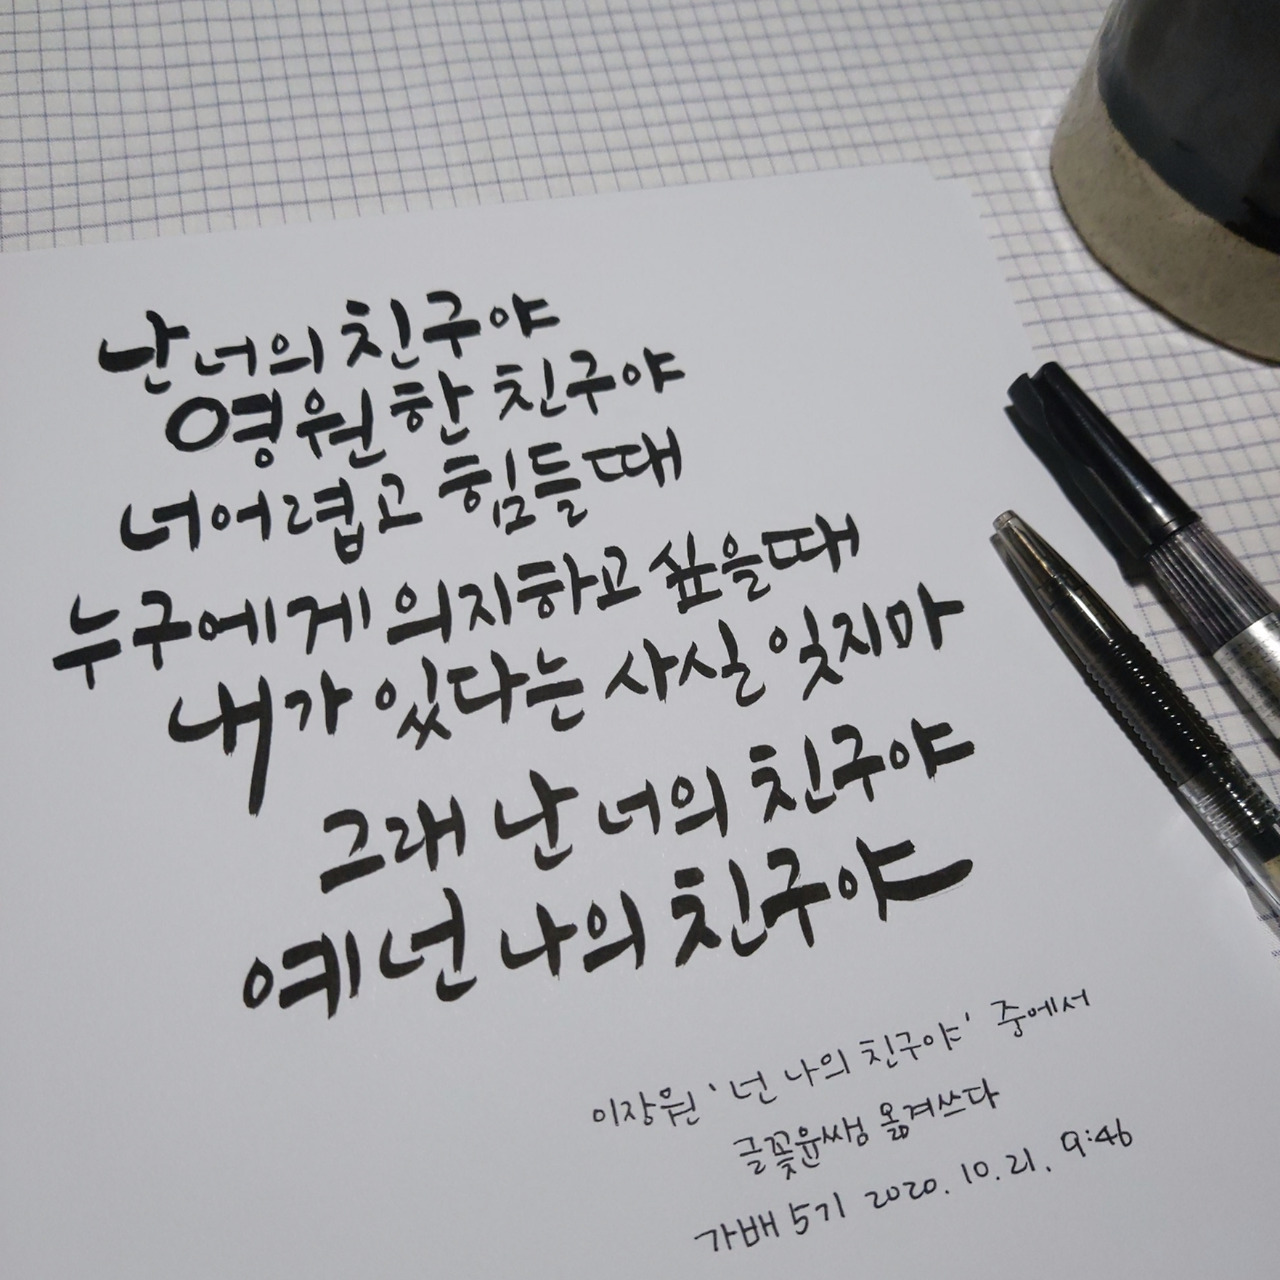 난 너의 친구야
영원한 친구야
너 어렵고 힘들때
누구에게 의지하고 싶을때
내가 있다는 사실 잊지마
그래 난 너의 친구야
예 넌 나의 친구야
이장원 '넌 나의 친구야' 중에서
글꽃윤쌤 옮겨쓰다
가배 5기 2020. 10. 21. 9:46